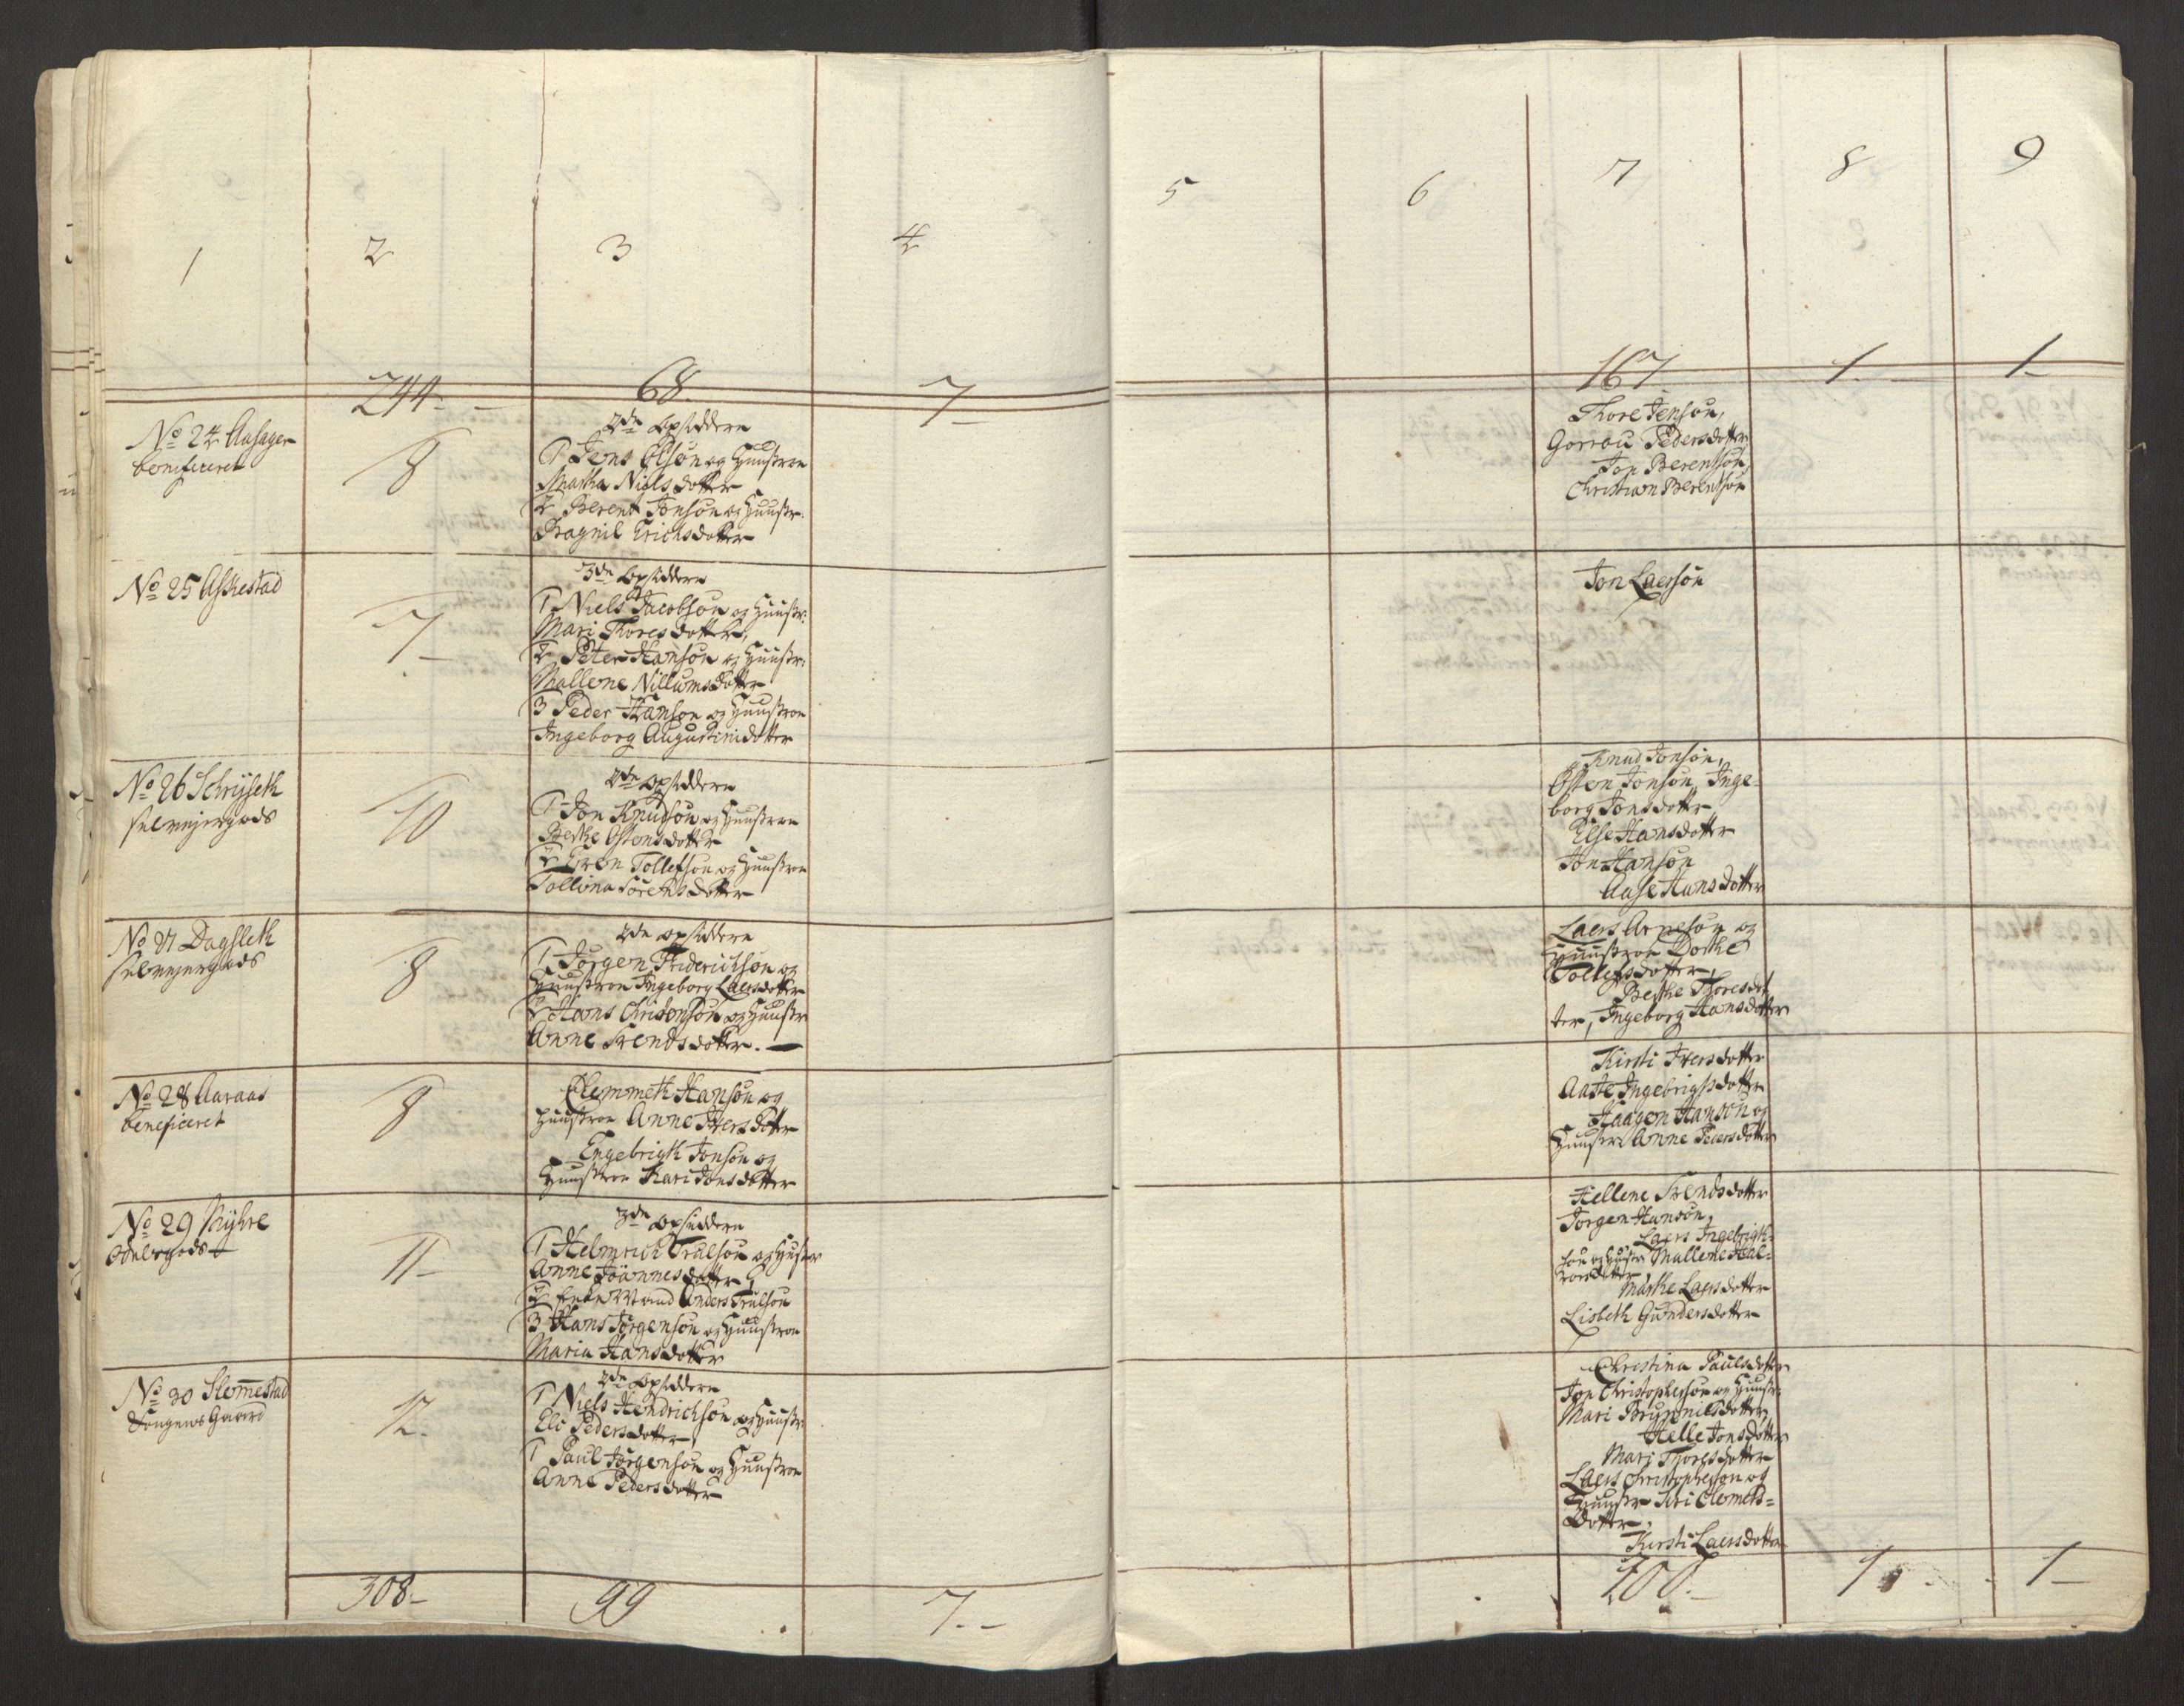 1
2
3
4
5
6
7
8
9
244
68
7
167
1
1
No 24 Aasager
beneficeret
8
2de opsiddere
1 Jens Olson og Huustroe
Martha Nielsdotter
2 Berent Jonson og Huustr.
Ragnil Erichsdotter
Thore Jenson,
Pedersdotter
Jon Berentson,
Christian Berentson
No 25 Askestad
7
3de opsiddere
1 Niels Jacobson og Huustr:
Mari Thoresdotter,
2 Peter Hanson og Huustr.
Mallene Nillumsdotter
3 Peder Hanson og Huustroe
Ingeborg Augustinidotter
Jon Laersøn
No 26
selvejergods
10
2de opsiddere
1 Jon Knudson og Huustroe
Berthe Ostensdotter
2 Even Tollefson og Huustroe
Tollina Sørensdotter
Knud Jonson,
Østen Jonson, Inge-
borg Jonsdotter
Else Hansdotter
Jon Hanson
Aase Hansdotter
No 27 Dagsleth
selvejergods
8
2de opsiddere
1 Jørgen Friderichson og
Huustroe Ingeborg Laersdotter
2 Hans og Huustr
Anne Svendsdotter.
Laers Arneson og
Huustroe Dorthe
Tollefsdotter,
Berthe Thoresdot
ter, Ingeborg Hansdotter
No 28 Aaraas
beneficeret
8
Clemmeth Hanson og
Huustroe Anne Iversdotter
Engebrigth Jonson og
Huustroe Kari Jonsdotter
Kirsti Iversdotter
Aaste Ingebrigtsdotter
Haagen Hanson og
Huustr. Anne Pedersdotter
No 29 Myhre
Odelsgods
11
3de opsiddere
1 Helmrich Trulson og Huustr
Anne Joannesdotter
2 Enke Mand Anders Trulson
3 Hans Jørgenson og Huustroe
Maria Hansdotter
Hellene Svendsdotter
Jorgen Hanson,
Laers Ingebrigth-
son og Huustr Mallene Hal-
vorsdotter
Marthe Laersdotter
Lisbeth Gundersdotter
No 30 Slemmestad
Kongens Gaard
12.
2de opsiddere
1 Niels Hendrichson og Huustr.
Eli Pedersdotter
1 Paul Jørgenson og Huustroe
Anne Pedersdotter
Christina Paulsdotter
Jon Christopherson og Huustr.
Mari Brynnildsdotter,
Helle Jonsdotter
Mari Thoresdotter
Laers Christopherson og
Huustr Siri Clemets-
dotter.
Kirsti Laersdotter
308
99
7
200
1
1